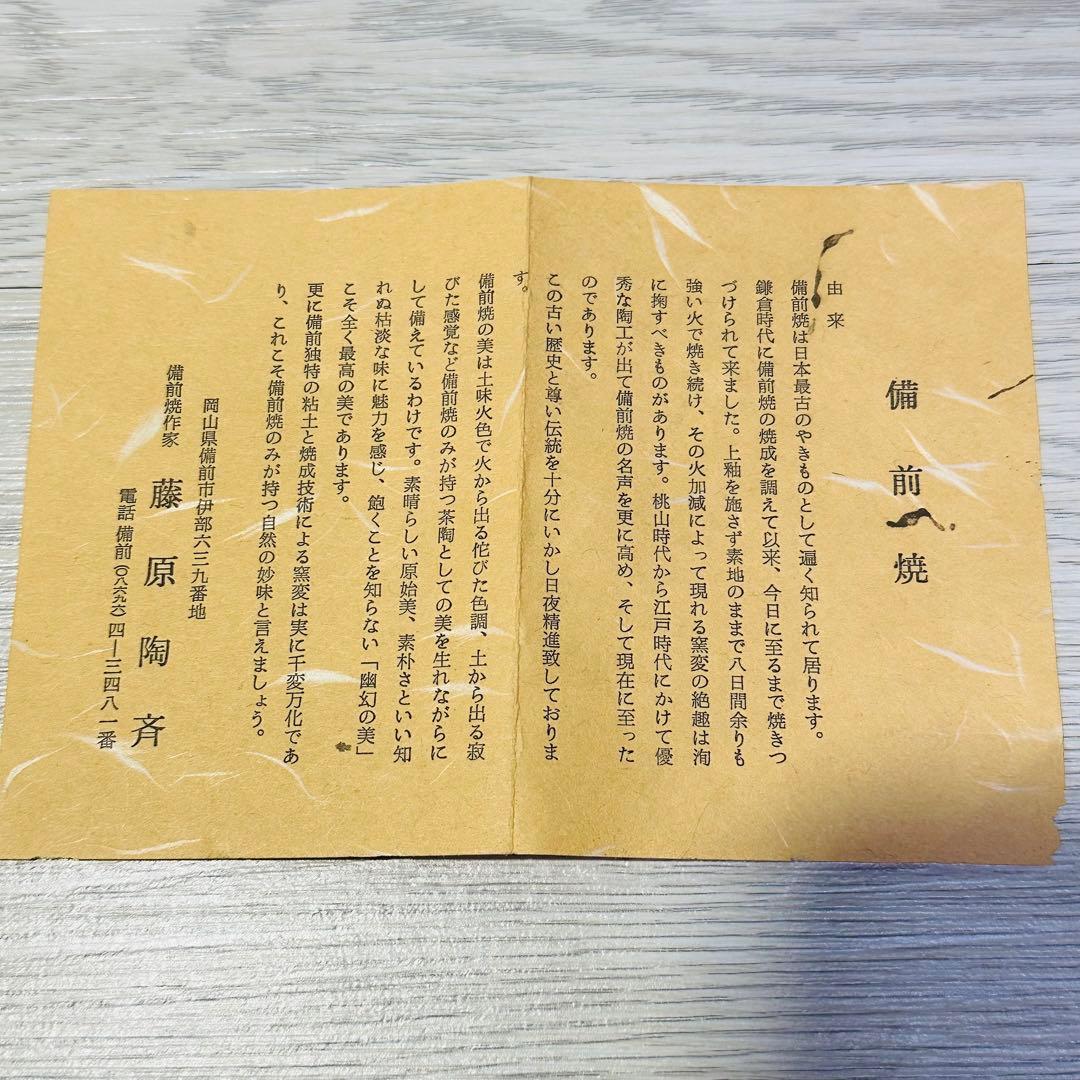 備前焼
由来
備前焼は日本最古のやきものとして遍く知られて居ります。
鎌倉時代に備前焼の焼成を調えて以来、今日に至るまで焼きつ
づけられて来ました。上釉を施さず素地のままで八日間余りも
強い火で焼き続け、その火加減によって現れる窯変の絶趣は洵
に掬すべきものがあります。桃山時代から江戸時代にかけて優
秀な陶工が出て備前焼の名声を更に高め、そして現在に至った
のであります。
この古い歴史と尊い伝統を十分にいかし日夜精進致しておりま
す。
備前焼の美は土味火色で火から出る侘びた色調、土から出る寂
びた感覚など備前焼のみが持つ茶陶としての美を生れながらに
して備えているわけです。素晴らしい原始美、素朴さといい知
れぬ枯淡な味に魅力を感じ、飽くことを知らない「幽幻の美」
こそ全く最高の美であります。
更に備前独特の粘土と焼成技術による窯変は実に千変万化であ
り、これこそ備前焼のみが持つ自然の妙味と言えましょう。
岡山県備前市伊部六三九番地
備前焼作家 藤原陶斉
電話 備前(〇八六九六)四―三四八一番